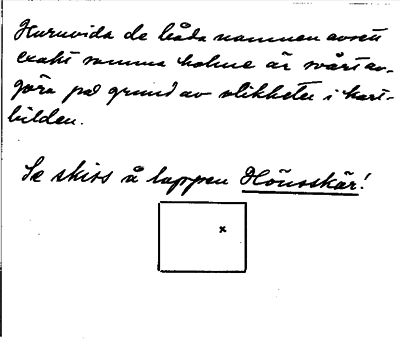 Huruvida de båda namnen avsett
exakt samma holme är svårt av-
göra på grund av olikheter i kart-
bilden.
Se skiss å lappen Hönsskär!
x